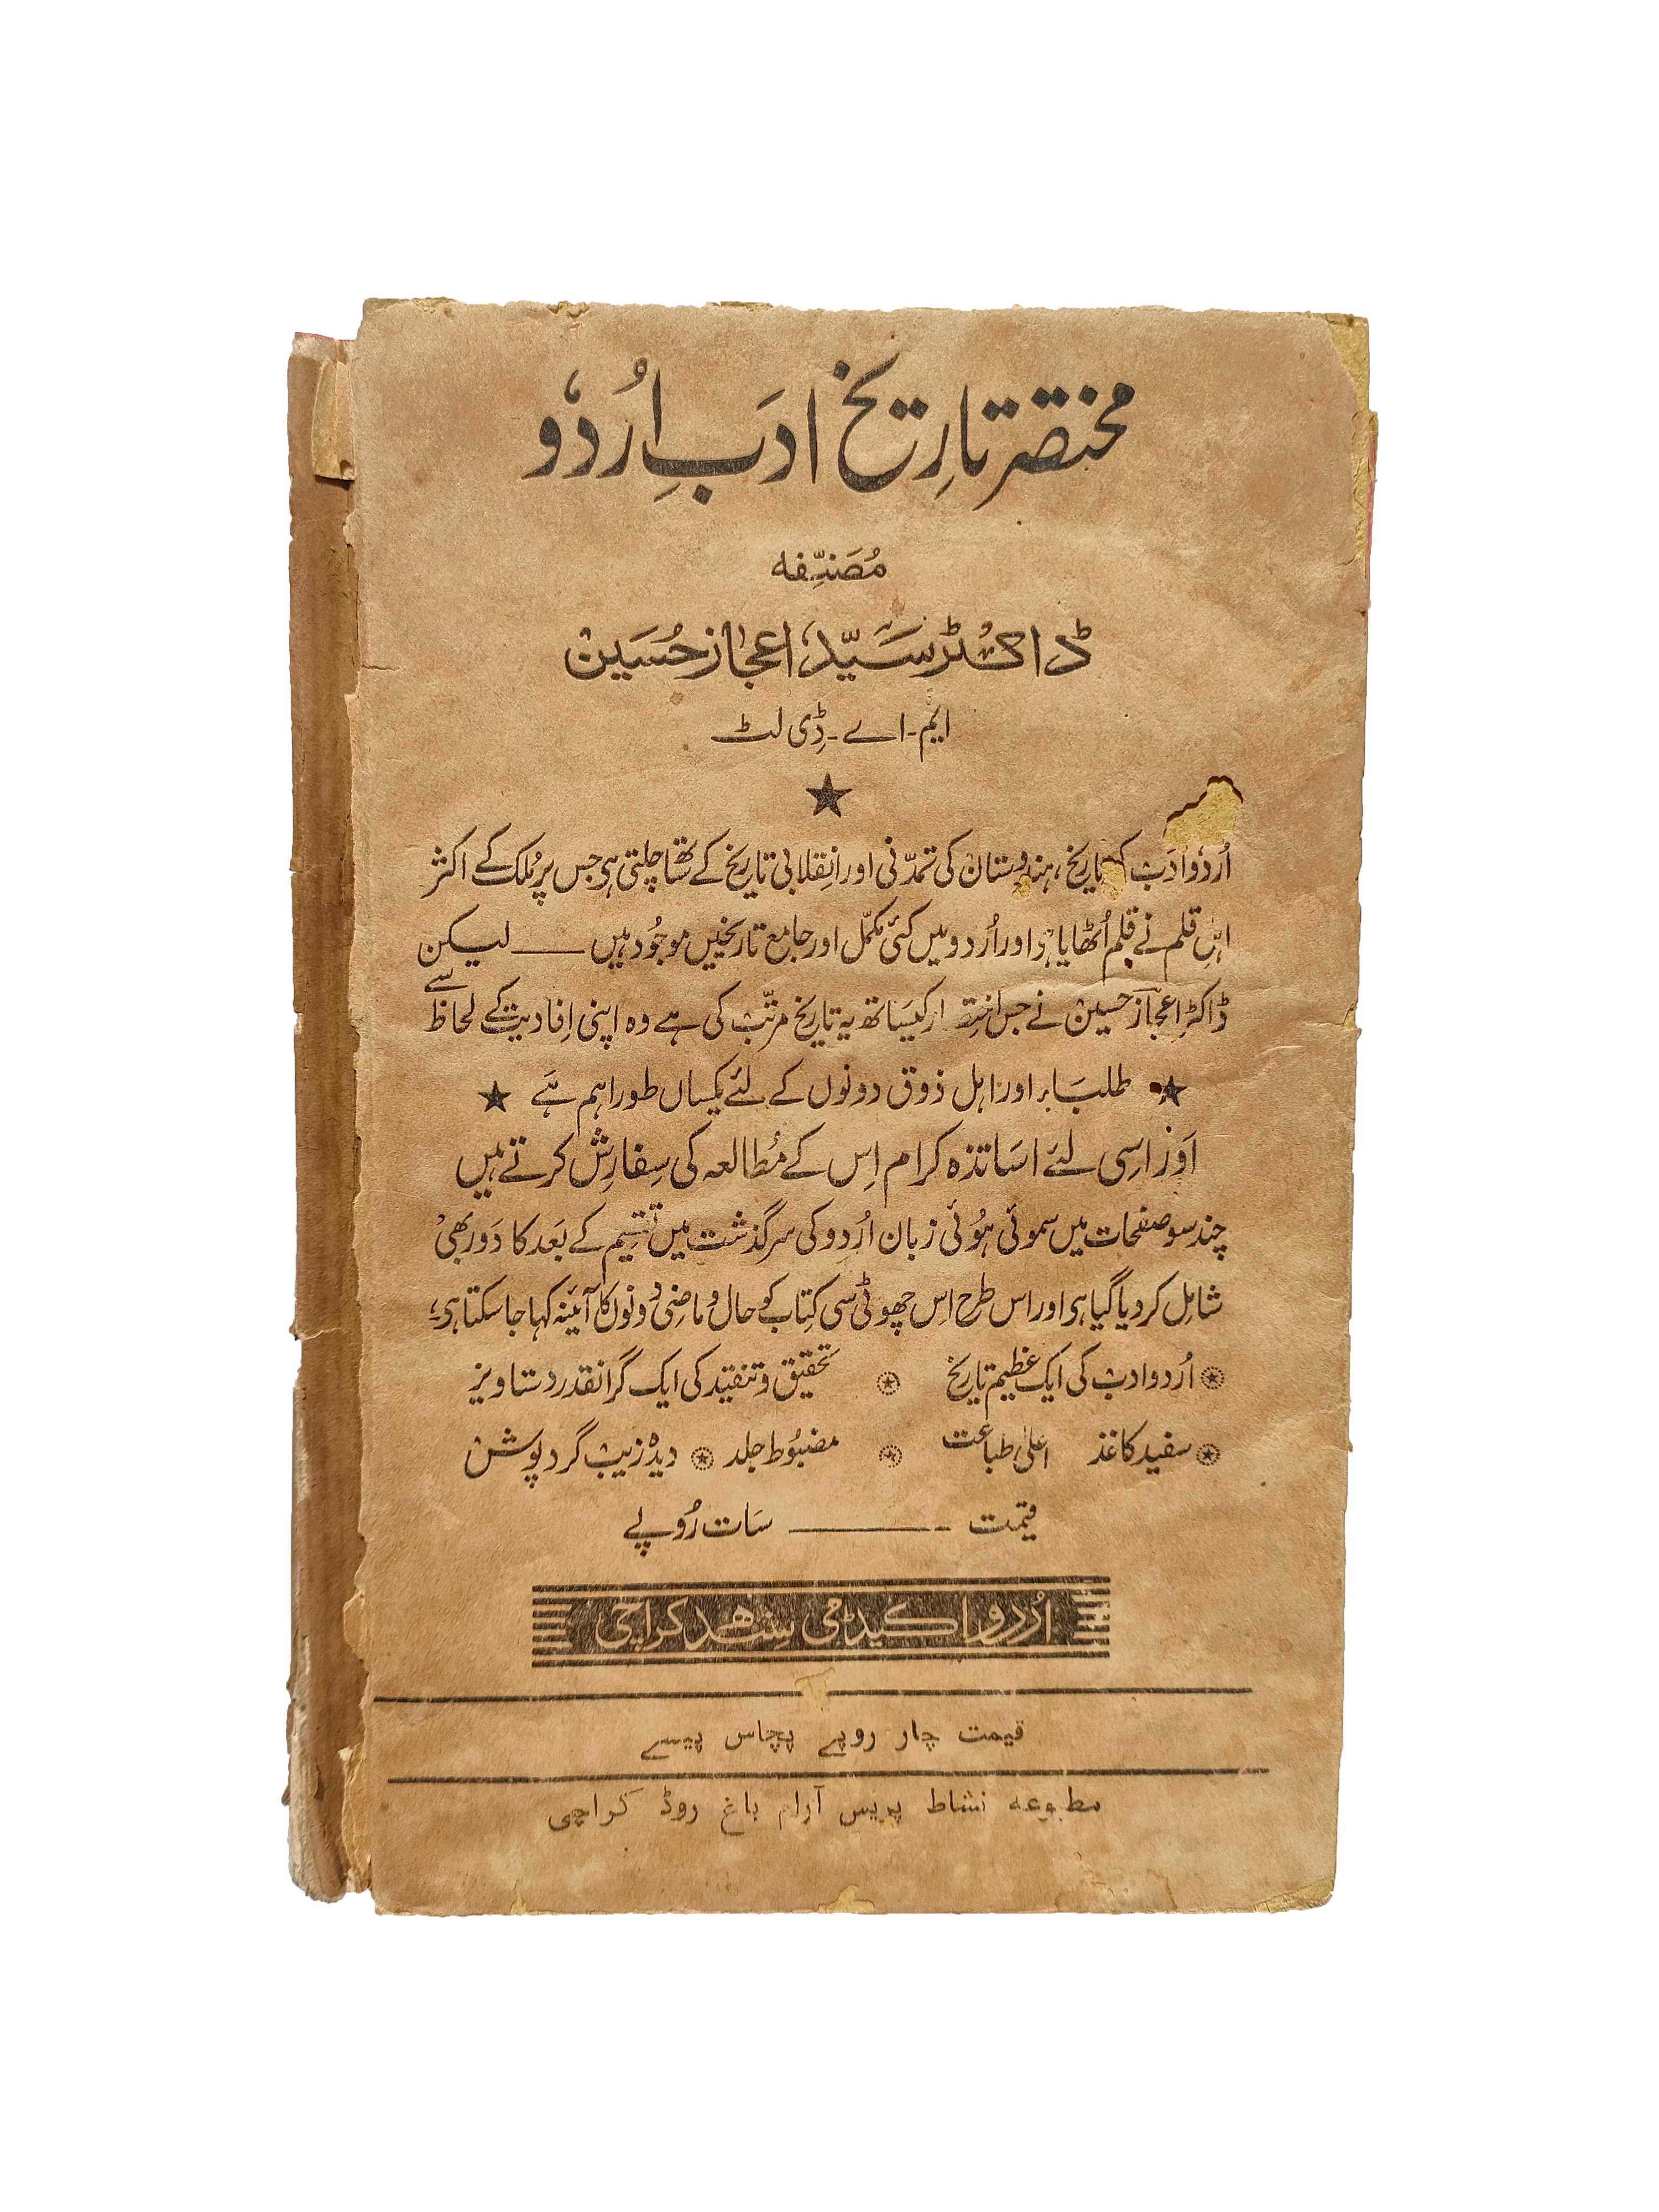 مختصر تاریخ ادبِ اُردو
مُصَنِّفہ
ڈاکٹر سیّد اعجاز حُسین
ایم-اے-ڈِی لٹ
اُردو ادَب کی تاریخ، ہندوستان کی تمدّنی اور انقلابی تاریخ کے ساتھ چلتی ہی جس پر مُلک کے اکثر
اہلِ قلم نے قلم اُٹھایا ہی اور اُردو میں کئی مکمّل اور جامع تاریخیں موجُود ہیں ــــ لیکن
ڈاکٹر اعجاز حسین نے جس کیساتھ یہ تاریخ مرتّب کی ہے وہ اپنی اِفادیت کے لحاظ سے
★ طلبَاء اور اہل ذوق دونوں کے لئے یکساں طور اہم ہَے ★
اَور اسِی لئے اسَاتذہ کرام اِس کے مُطالعہ کی سِفارِش کرتے ہیں
چند سو صفحات میں سموئی ہُوئی زبان اُردو کی سرگذشت میں تقسِیم کے بَعد کا دَور بھی
شامِل کردیا گیا ہی اور اس طرح اِس چھوٹی سی کِتاب کو حال و ماضِی دونوں کا آئینہ کہا جاسکتا ہی؛
اُردو ادب کی ایک عظیم تاریخ تحقیق و تنقید کی ایک گرانقدر دستاویز
سفید کاغذ اعلیٰ طباعت مضبُوط جلد دیدہ زیب گرد پوش
قیمت ــــــــ سَات رُوپے
اُردو اکیڈمی سِندھ کراچی
قیمت چار روپے پچاس پیسے
مطبوعہ نشاط پریس آرام باغ روڈ کراچی